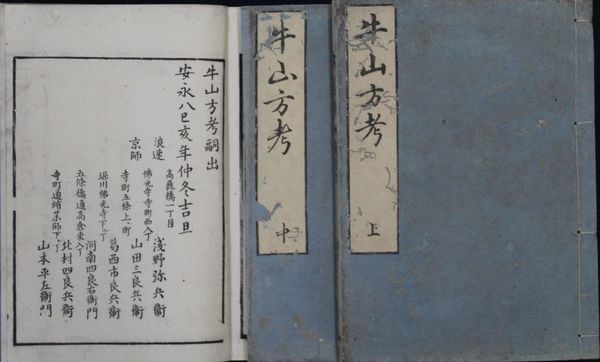 牛山方考
上
牛山方考
中
牛山方考嗣出
安永八巳亥年仲冬吉旦
浪速 高麗橋一丁目 淺野弥兵衛
京師 佛光寺寺町西入丁 山田三良兵衛
寺町五條上ル町 葛西市良兵衛
堀川佛光寺下ル丁 河南四良右衛門
五條橋通高倉東入丁 北村四良兵衛
寺町通蛸薬師下ル丁 山本平左衛門